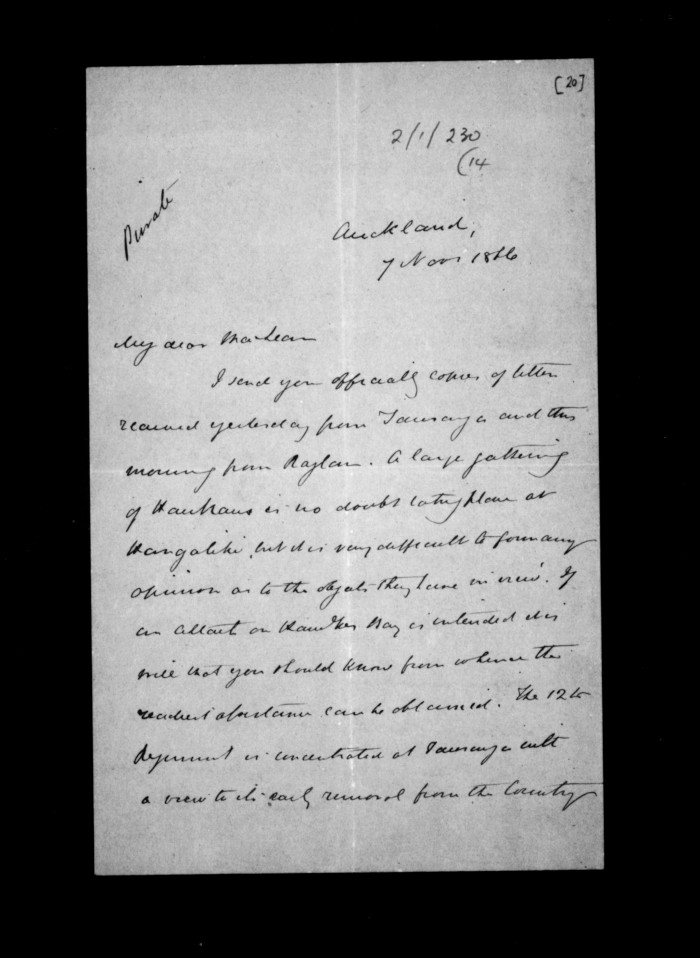 [20]
2/1/230
(14
Private
Auckland,
7 Novr 1866
My dear MacLean
I send you officially copies of letters
received yesterday from Tauranga and this
morning from Raglan. A large gathering
of Hauhaus is no doubt taking place at
Hangatiki but it is very difficult to form any
opinion as to the objects they have in view. If
an attack on Hawkes Bay is intended it is
well that you should know from whence the
readiest assistance can be obtained. The 12th
Regiment is concentrated at Tauranga with
a view to its early removal from the Country